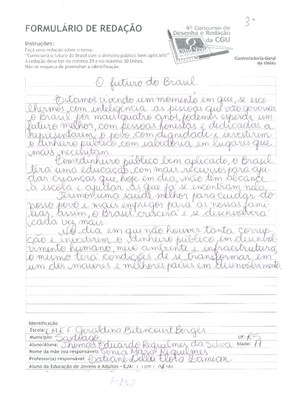 FORMULÁRIO DE REDAÇÃO
3º
4º Concurso de
Desenho e Redação
da CGU
Controladoria-Geral
da União
Instruções:
Faça uma redação sobre o tema:
"Como seria o futuro do Brasil com o dinheiro público bem aplicado?"
A redação deve ter no mínimo 20 e no máximo 30 linhas.
Não se esqueça de preencher a identificação.
O futuro do Brasil
Estamos vivendo um momento em que, se esco
lhermos com inteligência as pessoas que vão governar
o Brasil por mais quatro anos, podemos esperar um
futuro melhor, com pessoas honestas e dedicadas a
representarem o povo com dignidade e investirem o
dinheiro público com sabedoria em lugares que
mais necessitam.
Com dinheiro público bem aplicado, o Brasil
terá uma educação com mais recursos para aju
dar crianças que hoje em dia não têm acesso
à escola e ajudar as que já se encontram nela.
Teremos uma saúde melhor para cuidar do
nosso povo e mais empregos para as nossas famí
lias, assim, o Brasil crescerá e se desenvolverá
cada vez mais.
No dia em que não houver tanta corrup
ção e investirem o dinheiro público em desenvol
vimento humano, meio ambiente e infraestrutura,
o mesmo terá condições de se transformar em
um dos maiores e melhores países em desenvolvimento.
Identificação
Escola: E.M.E.F. Geraldina Bitencourt Borges
Município: Santiago UF: RS
Aluno/Aluna: Thomas Eduardo Requilmes da Silva Idade: 11
Nome da mãe (ou responsável): Sonia Mara Requilmes
Professor(es) responsável: Catiane Damian
Aluno da Educação de Jovens e Adultos - EJA: ( ) SIM ( ) NÃO